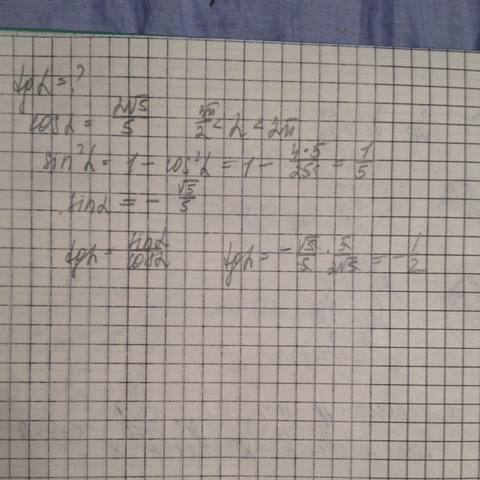 tgα = ?
cosα = 2√5/5    3π/2 < α < 2π
sin²α = 1 - cos²α = 1 - 4·5/25 = 1/5
sinα = - √5/5
tgα = sinα/cosα    tgα = - √5/5 · 5/2√5 = - 1/2